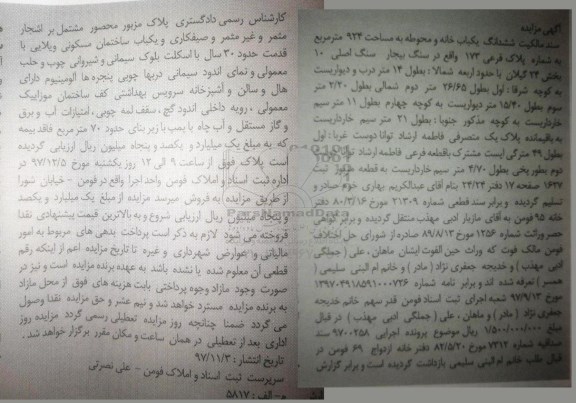 آگهی مزایده
سند مالکیت ششدانگ یکباب خانه و محوطه به مساحت ۹۲۴ مترمربع
به شماره پلاک فرعی ۱۷۳ واقع در سنگ بیجار سنگ اصلی ۱۰
بخش ۲۴ گیلان با حدود اربعه شمالا: بطول ۱۴ متر درب و دیواریست
به کوچه شرقا: اول بطول ۲۶/۶۵ متر دوم شمالی بطول ۲/۲۰ متر
سوم بطول ۱۵/۴۰ متر دیواریست به کوچه چهارم بطول ۱۱ متر سیم
خارداریست به کوچه مذکور جنوبا: بطول ۲۱ متر سیم خارداریست
به باقیمانده پلاک یک متصرفی فاطمه ارشاد توانا دوست غربا: اول
بطول ۴۹ مترگی ایست مشترک باقطعه فرعی فاطمه ارشاد
دوم بطور پخی بطول ۴/۷۰ متر سیم خارداریست به قطعه ثبت
۱۶۳۷ صفحه ۱۷ دفتر ۲۴/۲۴ بنام آقای عبدالکریم بهاری خوم صادر و
تسلیم گردیده و برابر سند قطعی شماره ۲۱۳۰۹ مورخ ۸۰/۳/۱۶ دفتر
خانه ۹۵ فومن به آقای مازیار ادبی مهذب منتقل گردیده و برابر گواهی
حصر وراثت شماره ۱۲۵۶ مورخ ۸۹/۸/۱۳ صادره از شورای حل اختلاف
فومن مالک فوت که وراث حین الفوت ایشان ماهان ، علی ( جملگی
ادبی مهذب ) و خدیجه جعفری نژاد ( مادر ) و خانم ام البنی سلیمی (
همسر ) تعرفه شده اند و برابر نامه شماره ۱۳۹۷۰۴۹۱۸۵۹۱۰۰۰۷۲۶
مورخ ۹۷/۹/۱۳ شعبه اجرای ثبت اسناد فومن قدر سهم خانم خدیجه
جعفری نژاد ( مادر ) و ماهان ، علی ( جملگی ادبی مهذب ) در قبال
مبلغ ۱/۵۰۰/۰۰۰/۰۰۰ ریال موضوع پرونده اجرایی ۹۷۰۰۲۵۸ سند
صداقیه شماره ۷۳۱۲ مورخ ۸۲/۵/۲۰ دفتر خانه ازدواج ۶۹ فومن در
قبال طلب خانم ام البنی سلیمی بازداشت گردیده است و برابر گزارش
کارشناس رسمی دادگستری پلاک مزبور محصور مشتمل بر اشجار
مثمر و غیر مثمر و صیفکاری و یکباب ساختمان مسکونی ویلایی با
قدمت حدود ۳۰ سال با اسکلت بلوک سیمانی و شیروانی چوب و حلب
معمولی و نمای اندود سیمانی دربها چوبی پنجره ها الومینیوم دارای
هال و سالن و آشپزخانه سرویس بهداشتی کف ساختمان موزاییک
معمولی ، رویه داخلی اندود گچ ، سقف لمبه چوبی ، امتیازات آب و برق
و گاز مستقل و آب چاه با پمپ با زیر بنای حدود ۷۰ متر مربع فاقد بیمه
که به مبلغ یک میلیارد و یکصد و پنجاه میلیون ریال ارزیابی گردیده
است پلاک فوق از ساعت ۹ الی ۱۲ روز یکشنبه مورخ ۹۷/۱۲/۵ در
اداره ثبت اسناد و املاک فومن واحد اجرا واقع در فومن - خیابان شورا
از طریق مزایده به فروش میرسد مزایده از مبلغ یک میلیارد و یکصد
و پنجاه میلیون ریال ارزیابی شروع و به بالاترین قیمت پیشنهادی نقدا
فروخته می شود لازم به ذکر است پرداخت بدهی های مربوط به امور
مالیاتی و عوارض شهرداری و غیره تا تاریخ مزایده اعم از اینکه رقم
قطعی آن معلوم شده یا نشده باشد به عهده برنده مزایده است و نیز در
صورت وجود مازاد وجوه پرداختی بابت هزینه های فوق از محل مازاد
به برنده مزایده مسترد خواهد شد و نیم عشر و حق مزایده نقدا وصول
می گردد ضمنا چنانچه روز مزایده تعطیلی رسمی گردد مزایده روز
اداری بعد از تعطیلی در همان ساعت و مکان مقرر برگزار خواهد شد .
تاریخ انتشار : ۹۷/۱۱/۳
سرپرست ثبت اسناد و املاک فومن - علی نصرتی
م - الف : ۵۸۱۷